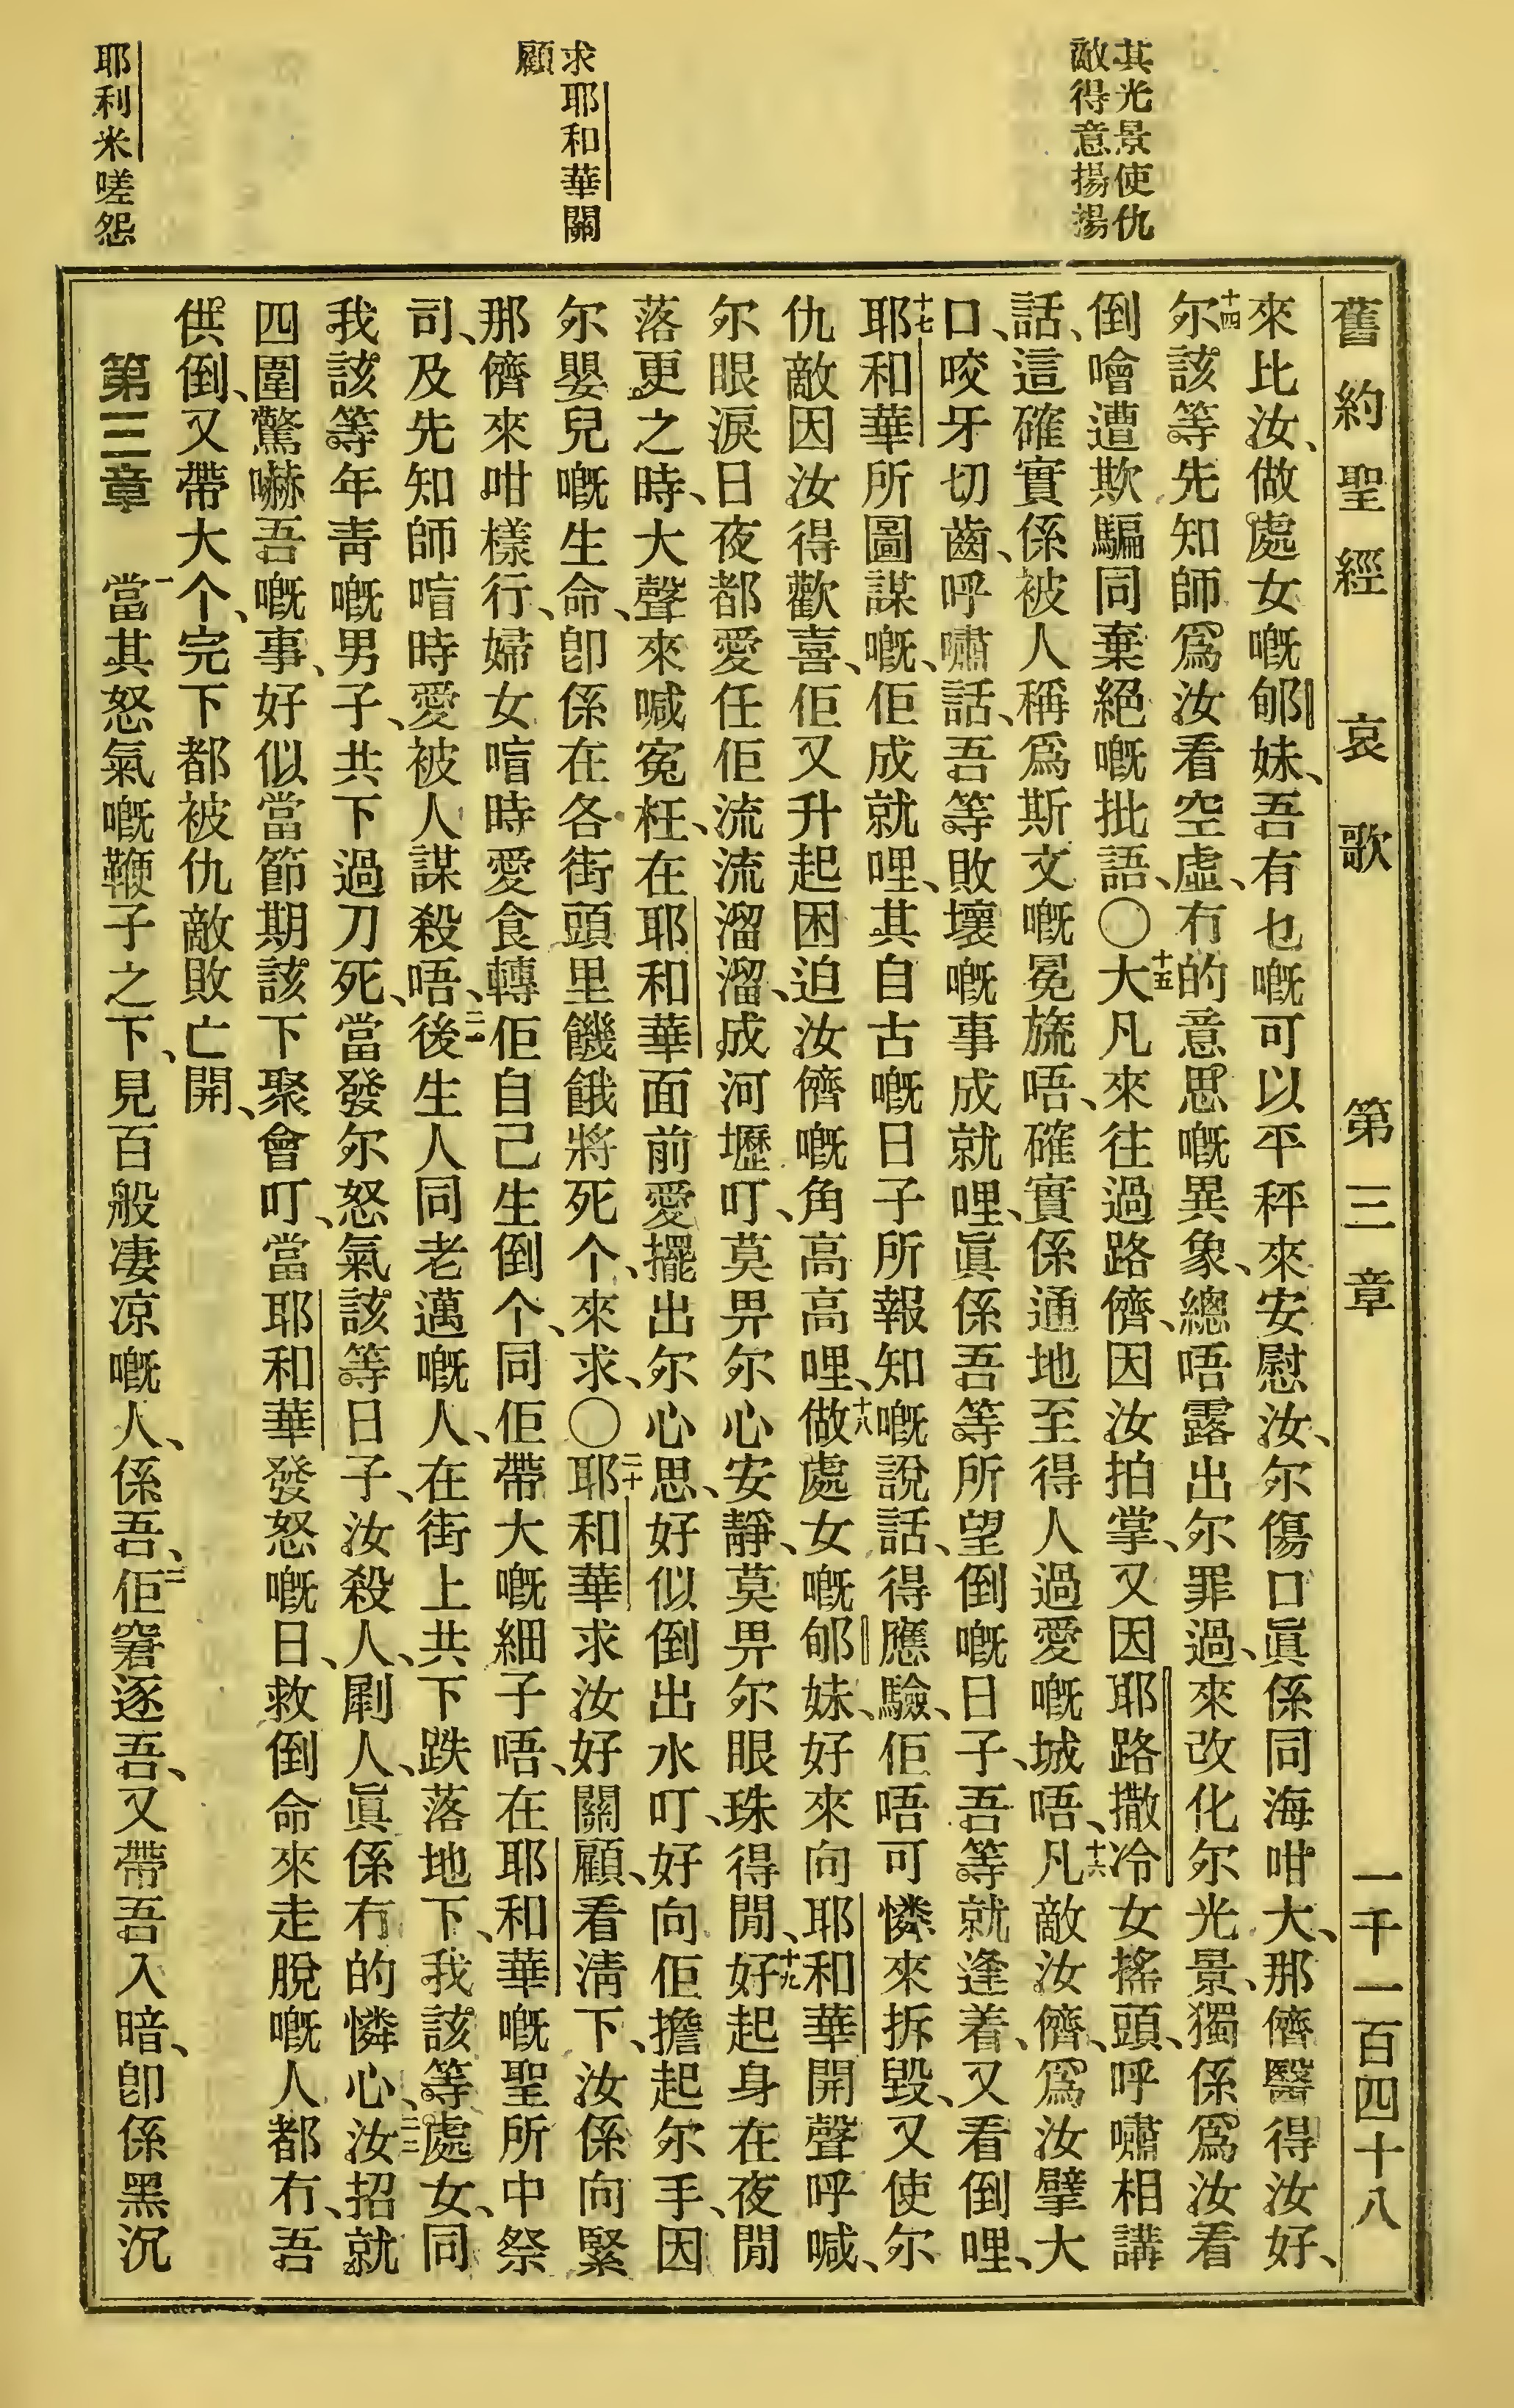 其光景使仇
敵得意揚揚
求耶和華關
顧
耶利米嗟怨
舊約聖經 哀歌 第三章 一千一百四十八
來比汝、做處女嘅郇妹、吾有乜嘅可以平秤來安慰汝、尔傷口眞係同海咁大、那儕醫得汝好、
十四尔該等先知師爲汝看空虛、冇的意思嘅異象、總唔露出尔罪過、來改化尔光景、獨係爲汝看
倒噲遭欺騙同棄絕嘅批語、〇十五大凡來往過路儕、因汝拍掌、又因耶路撒冷女搖頭、呼嘯相講
話、這確實係被人稱爲斯文嘅冕旒唔、確實係通地至得人過愛嘅城唔、十六凡敵汝儕、爲汝擘大
口、咬牙切齒、呼嘯話、吾等敗壞嘅事成就哩、眞係吾等所望倒嘅日子、吾等就逢着、又看倒哩、
十七耶和華所圖謀嘅、佢成就哩、其自古嘅日子所報知嘅說話、得應驗、佢唔可憐來拆毀、又使尔
仇敵因汝得歡喜、佢又升起困迫汝儕嘅角高高哩、十八做處女嘅郇妹、好來向耶和華開聲呼喊、
尔眼淚日夜都愛任佢流流溜溜、成河壢叮、莫畀尔心安靜、莫畀尔眼珠得閒、十九好起身在夜間
落更之時、大聲來喊寃枉、在耶和華面前愛擺出尔心思、好似倒出水叮、好向佢擔起尔手、因
尔嬰兒嘅生命、卽係在各街頭里饑餓將死个、來求、〇二十耶和華求汝好關顧、看淸下、汝係向緊
那儕來咁樣行、婦女㫾時愛食轉佢自己生倒个、同佢帶大嘅細子唔、在耶和華嘅聖所中祭
司、及先知師㫾時愛被人謀殺唔、二一後生人同老邁嘅人、在街上共下跌落地下、我該等處女、同
我該等年靑嘅男子、共下過刀死、當發尔怒氣該等日子、汝殺人、劚人、眞係冇的憐心、二二汝招就
四圍驚嚇吾嘅事、好似當節期該下聚會叮、當耶和華發怒嘅日、救倒命來走脫嘅人都冇、吾
供倒、又帶大个、完下都被仇敵敗亡開、
第三章 一當其怒氣嘅鞭子之下、見百般凄凉嘅人、係吾、二佢窘逐吾、又帶吾入暗、卽係黑沉